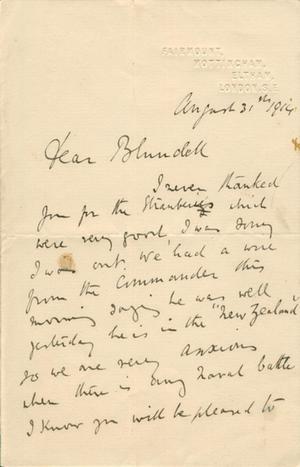 FAIRMOUNT,
MOTTINGHAM,
ELTHAM,
LONDON, S.E.
August 31st 1914
Dear Blundell
I never thanked
you for the strawberries which
were very good I was sorry
I was out. We had a wire
from the Commander this
morning saying he was well
yesterday he is in the "New Zealand"
so we are very anxious
when there is any Naval battle
I know you will be pleased to